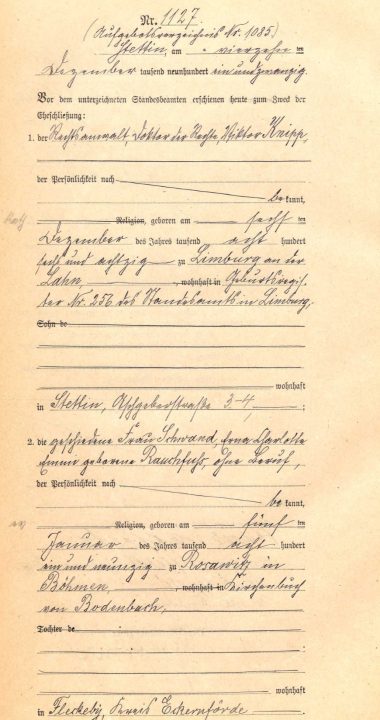 Nr. 1127.
(Aufgebotsverzeichnis Nr. 1085)
Stettin, am vierzehn ten
Dezember tausend neunhundert einundzwanzig.
Vor dem unterzeichneten Standesbeamten erschienen heute zum Zweck der
Eheschließung:
1. der Rechtsanwalt, Doktor der Rechte, Viktor Knipp,
der Persönlichkeit nach
be kannt,
kath Religion, geboren am sechs ten
Dezember des Jahres tausend acht hundert
sechs und achtzig zu Limburg an der
Lahn, wohnhaft in Geburtsregis-
ter Nr. 256 des Standesamts in Limburg,
Sohn de
wohnhaft
in Stettin, 3-4, ;
2. die geschiedene Frau Schwand, Erna Charlotte
Emma geborene Rauchfuss, ohne Beruf,
der Persönlichkeit nach
be kannt,
ev Religion, geboren am fünf ten
Januar des Jahres tausend acht hundert
ein und neunzig zu Rosawitz in
Böhmen, wohnhaft in Kirchenbuch
von Bodenbach,
Tochter de
wohnhaft
in Fleckeby, Kreis Eckernförde